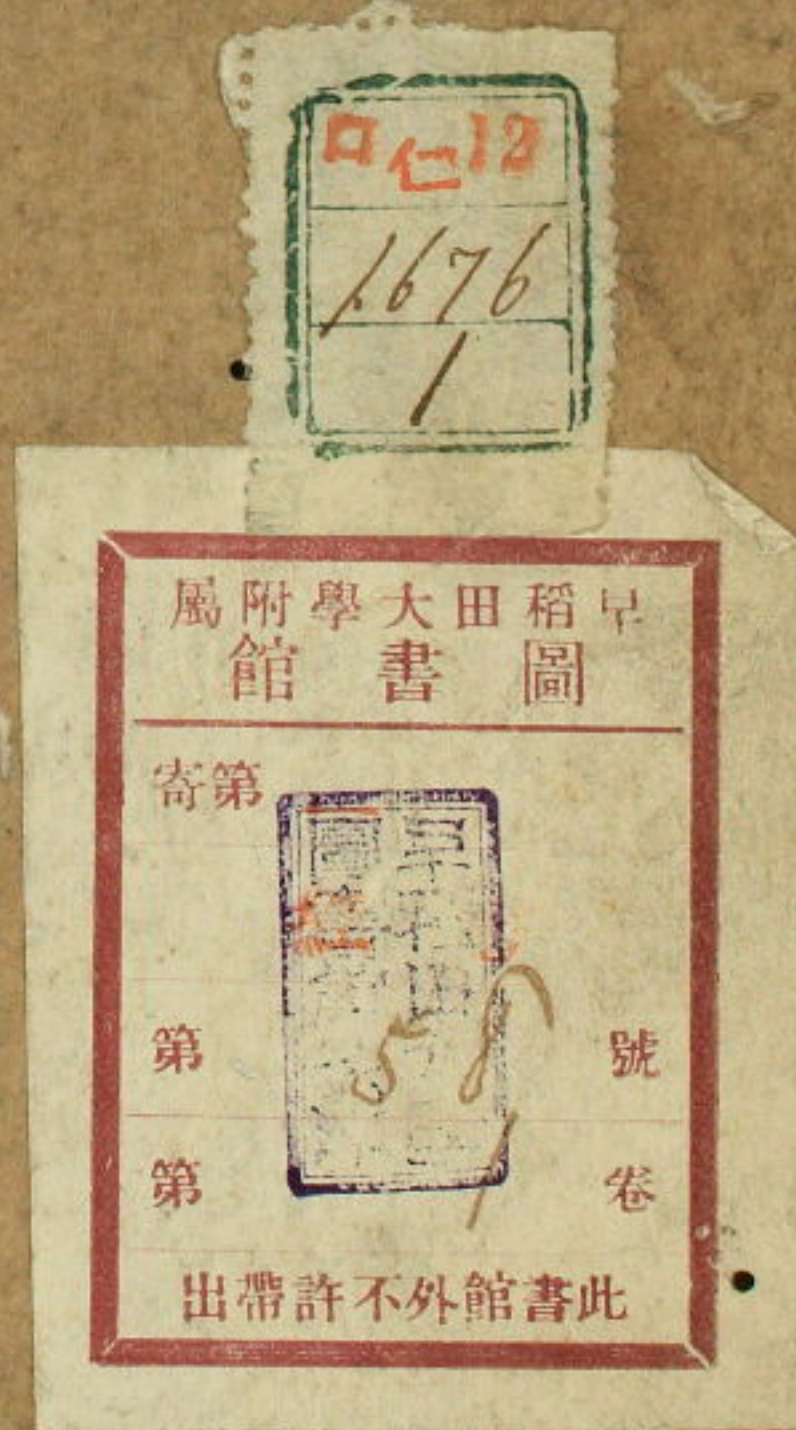 口仁12
1676
1
早稻田大學附屬
圖書館
寄第
第58號
第1卷
此書館外不許帶出